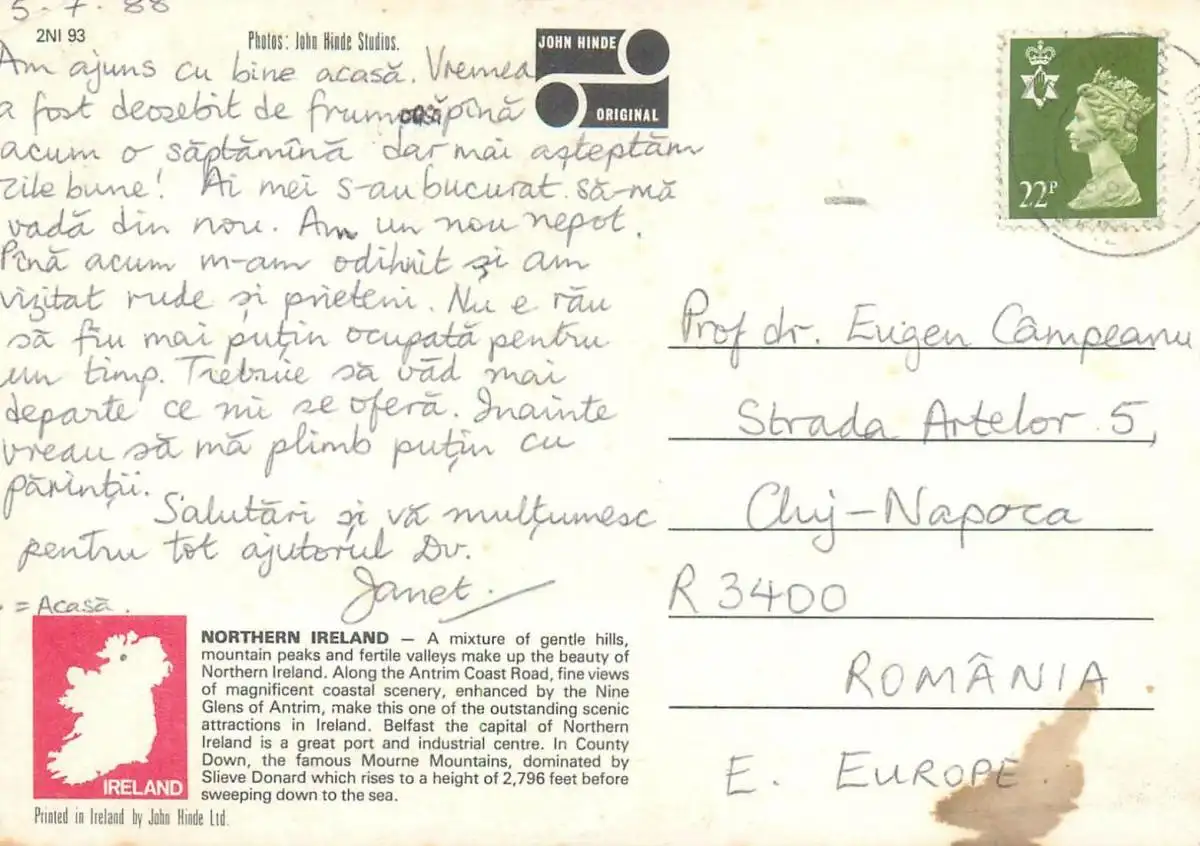 5-7-88
2NI 93
Photos: John Hinde Studios.
JOHN HINDE
ORIGINAL
Am ajuns cu bine acasă. Vremea
a fost deosebit de frumoasă pînă
acum o săptămînă dar mai aşteptăm
zile bune! Ai mei s-au bucurat să-mă
vadă din nou. Am un nou nepot.
Pînă acum m-am odihnit şi am
vizitat rude şi prieteni. Nu e rău
să fiu mai puţin ocupată pentru
un timp. Trebuie să văd mai
departe ce mi se oferă. Inainte
vreau să mă plimb puţin cu
părinţii.
Salutări şi vă mulţumesc
pentru tot ajutorul Dv.
Janet.
• = Acasă.
22P
Prof dr. Eugen Câmpeanu
Strada Artelor 5,
Cluj-Napoca
R 3400
ROMÂNIA
E. EUROPE.
NORTHERN IRELAND — A mixture of gentle hills,
mountain peaks and fertile valleys make up the beauty of
Northern Ireland. Along the Antrim Coast Road, fine views
of magnificent coastal scenery, enhanced by the Nine
Glens of Antrim, make this one of the outstanding scenic
attractions in Ireland. Belfast the capital of Northern
Ireland is a great port and industrial centre. In County
Down, the famous Mourne Mountains, dominated by
Slieve Donard which rises to a height of 2,796 feet before
sweeping down to the sea.
IRELAND
Printed in Ireland by John Hinde Ltd.